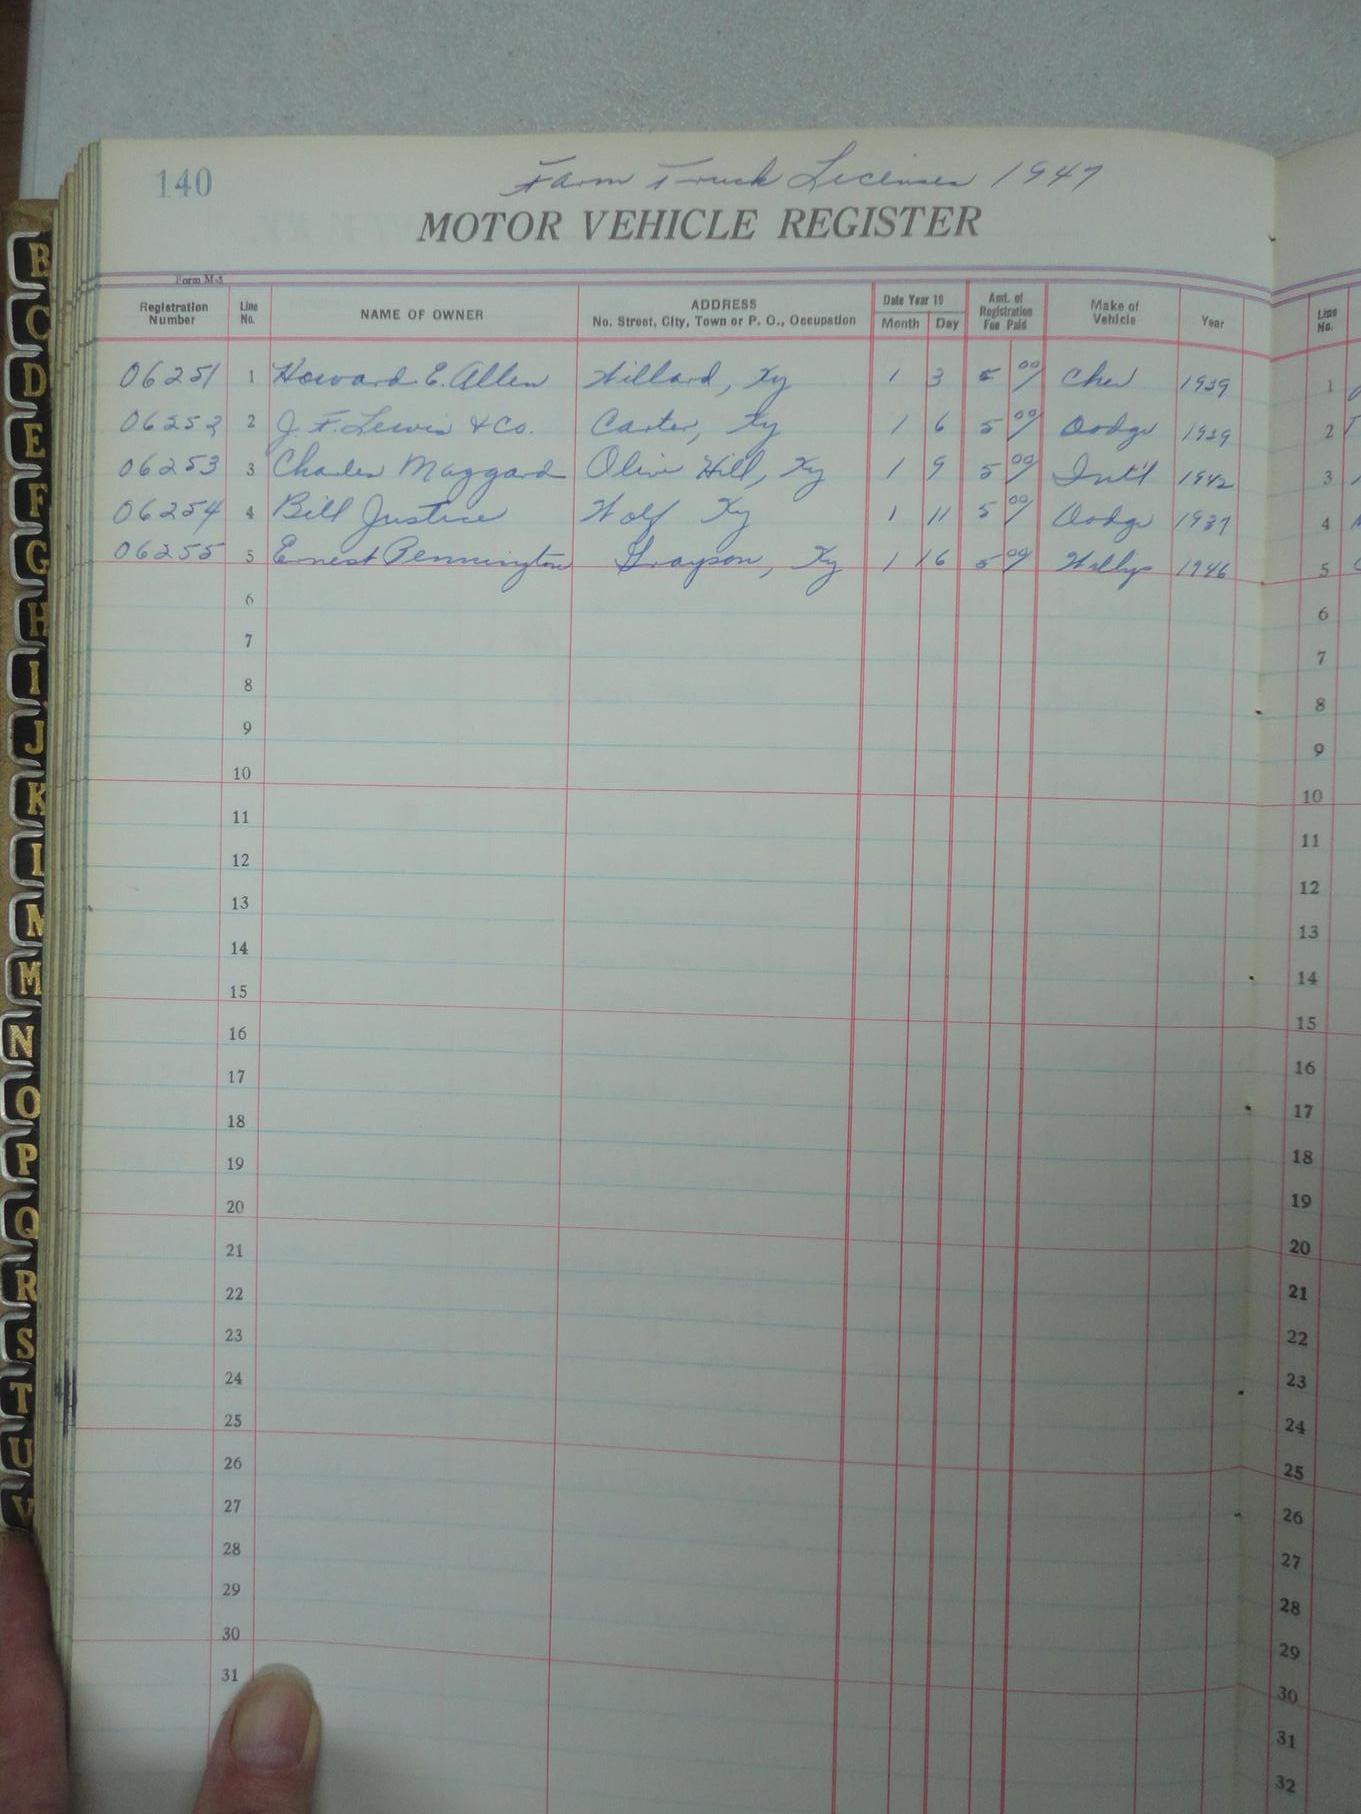 140
Farm Truck Licenses 1947
MOTOR VEHICLE REGISTER
Form M-5
Registration Number Line No. NAME OF OWNER ADDRESS No. Street, City, Town or P. O., Occupation Date Year 19 Month Day Amt. of Registration Fee Paid Make of Vehicle Year Line No.
06251 1 Howard E. Allen Willard, Ky 1 3 5 00 Chev 1939 1
06252 2 J. F. Lewis & Co. Carter, Ky 1 6 5 00 Dodge 1939 2
06253 3 Charles Maggard Olive Hill, Ky 1 9 5 00 Int'l 1942 3
06254 4 Bill Justice Wolf Ky 1 11 5 00 Dodge 1937 4
06255 5 Ernest Pennington Grayson, Ky 1 16 5 00 Willys 1946 5
6 6
7 7
8 8
9 9
10 10
11 11
12 12
13 13
14 14
15 15
16 16
17 17
18 18
19 19
20 20
21 21
22 22
23 23
24 24
25 25
26 26
27 27
28 28
29 29
30 30
31 31
32
B
C
D
E
F
G
H
I
J
K
L
M
M
N
O
P
Q
R
S
T
U
V